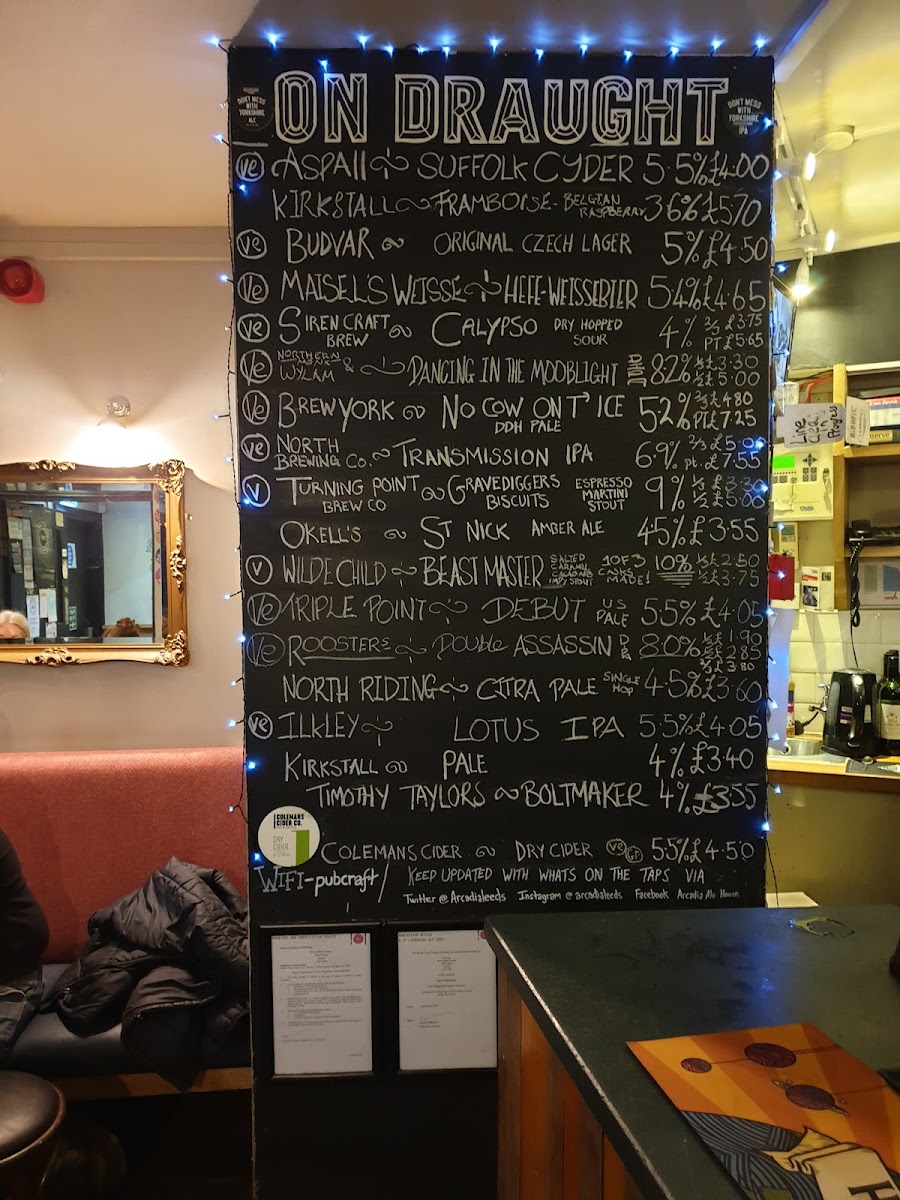 ON DRAUGHT
DON'T MESS WITH YORKSHIRE ALE
DON'T MESS WITH YORKSHIRE IPA
Ve ASPAll SUFFOLK CYDER 5.5% £4.00
KIRKSTALL FRAMBOISE - BELGIAN RASPBERRY 3.6% £5.70
Ve BUDVAR ORIGINAL CZECH LAGER 5% £4.50
Ve MAISEL'S WEISSE HEFE-WEISSEBIER 5.4% £4.65
Ve SIREN CRAFT BREW CALYPSO DRY HOPPED SOUR 4% 2/3 £3.75 PT £5.65
Ve NORTHERN MONK & WYLAM DANCING IN THE MOOBLIGHT 8.2% 1/3 £3.30 1/2 £5.00
Ve BREWYORK NO COW ON T' ICE DDH PALE 5.2% 2/3 £4.80 PT £7.25
Ve NORTH BREWING CO. TRANSMISSION IPA 6.9% 2/3 £5.00 pt. £7.55
V TURNING POINT BREW CO GRAVEDIGGERS BISCUITS ESPRESSO MARTINI STOUT 9% 1/3 £3.30 1/2 £5.00
OKELL'S ST NICK AMBER ALE 4.5% £3.55
V WILDE CHILD BEAST MASTER SALTED CARAMEL IMP STOUT 1 OF 3 MADE! 10% 1/3 £2.50 1/2 £3.75
Ve TRIPLE POINT DEBUT US PALE 5.5% £4.05
Ve ROOSTERS DOUBLE ASSASSIN DIPA 8.0% 1/3 £1.90 1/2 £2.85 2/3 £3.80
NORTH RIDING CITRA PALE SINGLE HOP 4.5% £3.60
Ve ILKLEY LOTUS IPA 5.5% £4.05
KIRKSTALL PALE 4% £3.40
TIMOTHY TAYLORS BOLTMAKER 4% £3.55
COLEMANS CIDER CO.
DRY CIDER
COLEMANS CIDER DRY CIDER Ve GF 5.5% £4.50
WIFI-pubcraft / KEEP UPDATED WITH WHATS ON THE TAPS VIA
Twitter @ Arcadialeeds Instagram @ arcadialeeds Facebook Arcadia Ale House
Line Clean in Progress